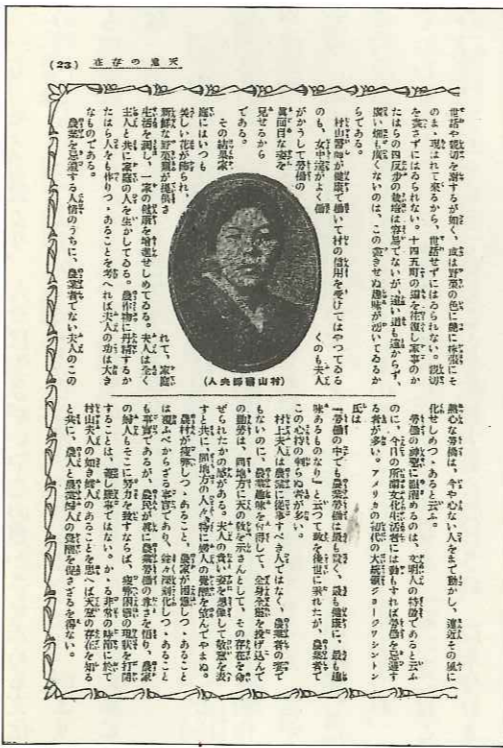 天意の存在 (23)
世話や親切を謝するが如く、或は野菜の色に艶に株張にそ
のまゝ現はれて來るから、世話せずにはゐられない。親切
を盡さずにはゐられない。十四五町の道を往復し家事のか
たはらの四反歩の栽培は容易でないが、遠い道も遠からず、
廣い畑も廣くないのは、この盡きせぬ趣味が湧いてゐるか
らである。
村山醫師が健康で働いて村の信用を受けてはやつてゐる
のも、女中達がよく働くのも夫人
がかうして勞働の
眞面目な姿を
見せるから
である。
その結果家
庭にはいつも
美しい花が飾られ、
新鮮な野菜類が提供されて、家庭
生活を潤し、一家の健康を增進せしめてゐる。夫人は全く
主人と共に家庭の人を生かしてゐる。農作物に丹精するか
たはら人をも作りつゝあることを考へれば夫人の功は大き
なものである。
農業を忌避する人情のうちに、農業者でない夫人のこの
(村山醫師夫人)
熱心な勞働は、今や心ない人をまで動かし、遠近その風に
化せしめつゝあると云ふ。
勞働の神聖に目醒めるのは、文明人の特徵であると云ふ
のに、今日の所謂文化生活者には動もすれば勞働を忌避す
る者が多い。アメリカの初代の大統領ジョージワシントン
氏は
『勞働の中でも農業勞働は最も貴く、最も健康に、最も趣
味あるものなり』と云つて敎を後世に垂れたが、農業者で
この心持の判らぬ者が多い。
村上夫人は農業に從事すべき人ではなく、農業者の妻で
もないのに、農業趣味を有得して、全身全能を投げ込んで
の勤勞は、同地方に天の敎を示さんとして、その存在を命
ぜられたかの感がある。夫人の貴い姿を想像して敬意を表
すと共に、同地方の人々、特に婦人の覺醒を望んでやまぬ。
農村が疲弊しつゝあること、農家が困憊しつゝあること
は覆ふべからざる事實であり、益々深刻化しつゝあること
も事實であるが、農民が眞に農業勞働の尊さを悟り、農家
の婦人もそこに努力を致すならば、疲弊困憊の現狀を打開
することは、難事ではない。かゝる非常の時節に於て
村山夫人の如き婦人のあることを思へば天意の存在を知る
と共に、農人と農業婦人の覺醒を促さざるを得ない。